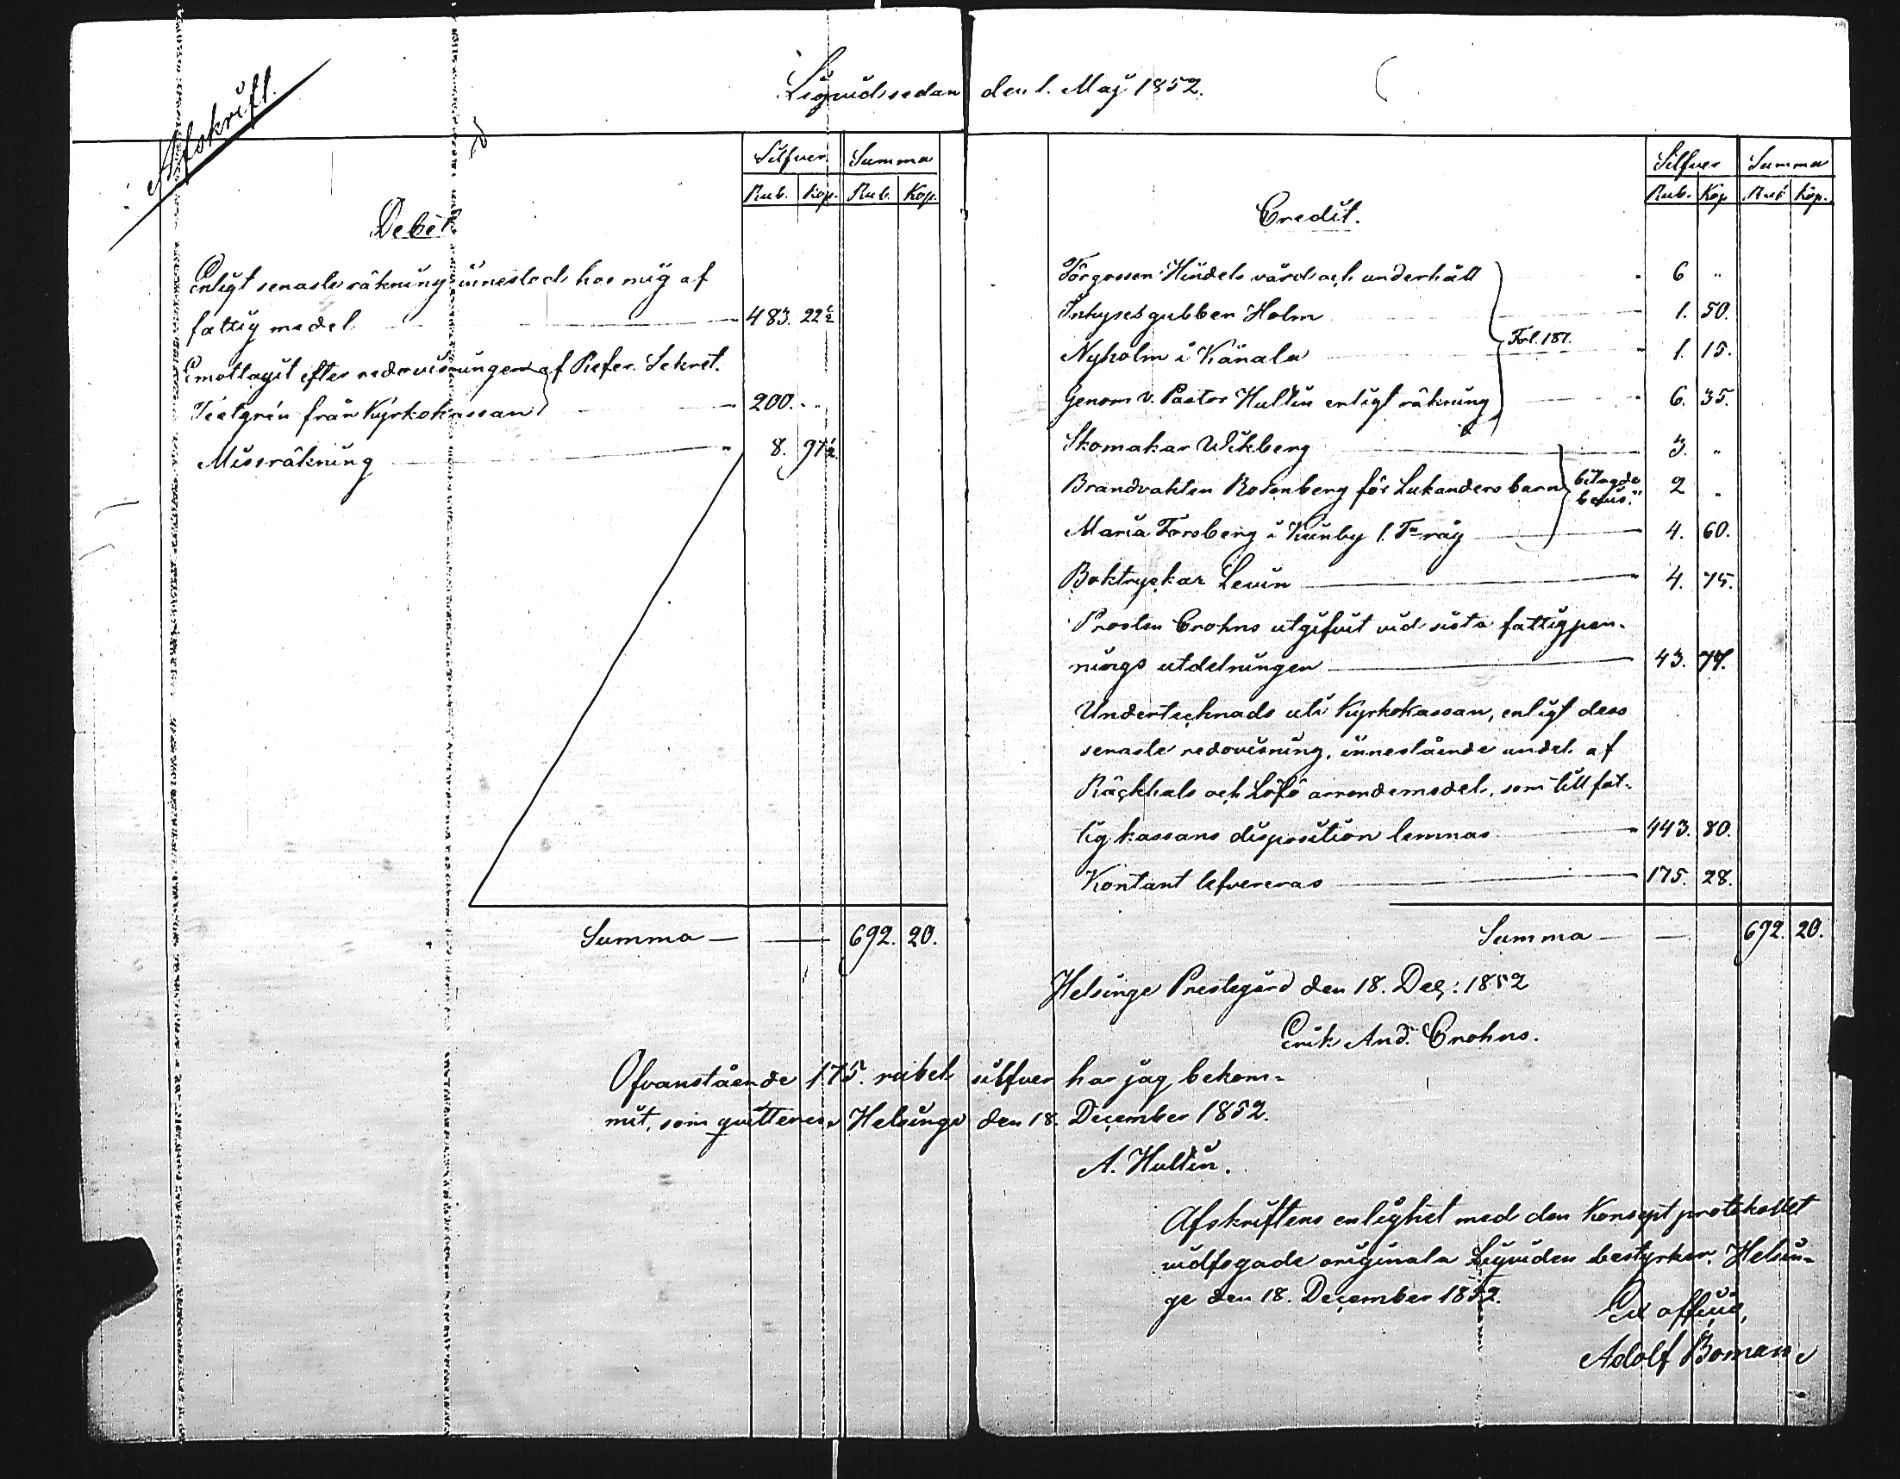 Afskrift.
Liqvid sedan den 1. Maj 1852.
Debet
Silfver Summa
Rub. Kop. Rub. Kop.
Enligt senaste räkning innestod hos mig af
fattig medel 483. 22½
Emottagit efter redovisningen af Refer. Sekret.
från Kyrkokassan 200. "
Missräkning 8. 97½
Summa 692. 20.
Credit.
Silfver Summa
Rub. Kop Rub Kop.
Hindels vård och underhåll 6 "
Inhysesgubben Holm 1. 50.
Nyholm i Kånala 1. 15.
Genom v. Pastor Hultin enligt räkning 6. 35.
Skomakar Wikberg 3. "
Brandvakten Rosenberg för Lukanders barn 2 "
Maria Forsberg i Kunby 1. Tna råg 4. 60.
Boktryckar Levin 4. 75.
Prosten Crohns utgifvit vid sista fattigpen-
nings utdelningen 43. 77.
Undertecknads uti Kyrkokassan, enligt dess
senaste redovisning, innestående andel af
Räckhals och Löfö arrendemedel, som till fat-
tig kassans disposition lemnas 443. 80.
Kontant lefvereras 175. 28.
Summa 692. 20.
Helsinge Prestegård den 18. Dec: 1852
Erik And. Crohns.
Ofvanstående 175. rubel silfver har jag bekom-
mit, som qvitteras Helsinge den 18. December 1852.
A. Hultin.
Afskriftens enlighet med den Konsept protokollet
vidfogade originala Liqviden bestyrker. Helsin-
ge den 18. December 1852.
Ex officio,
Adolf Boman